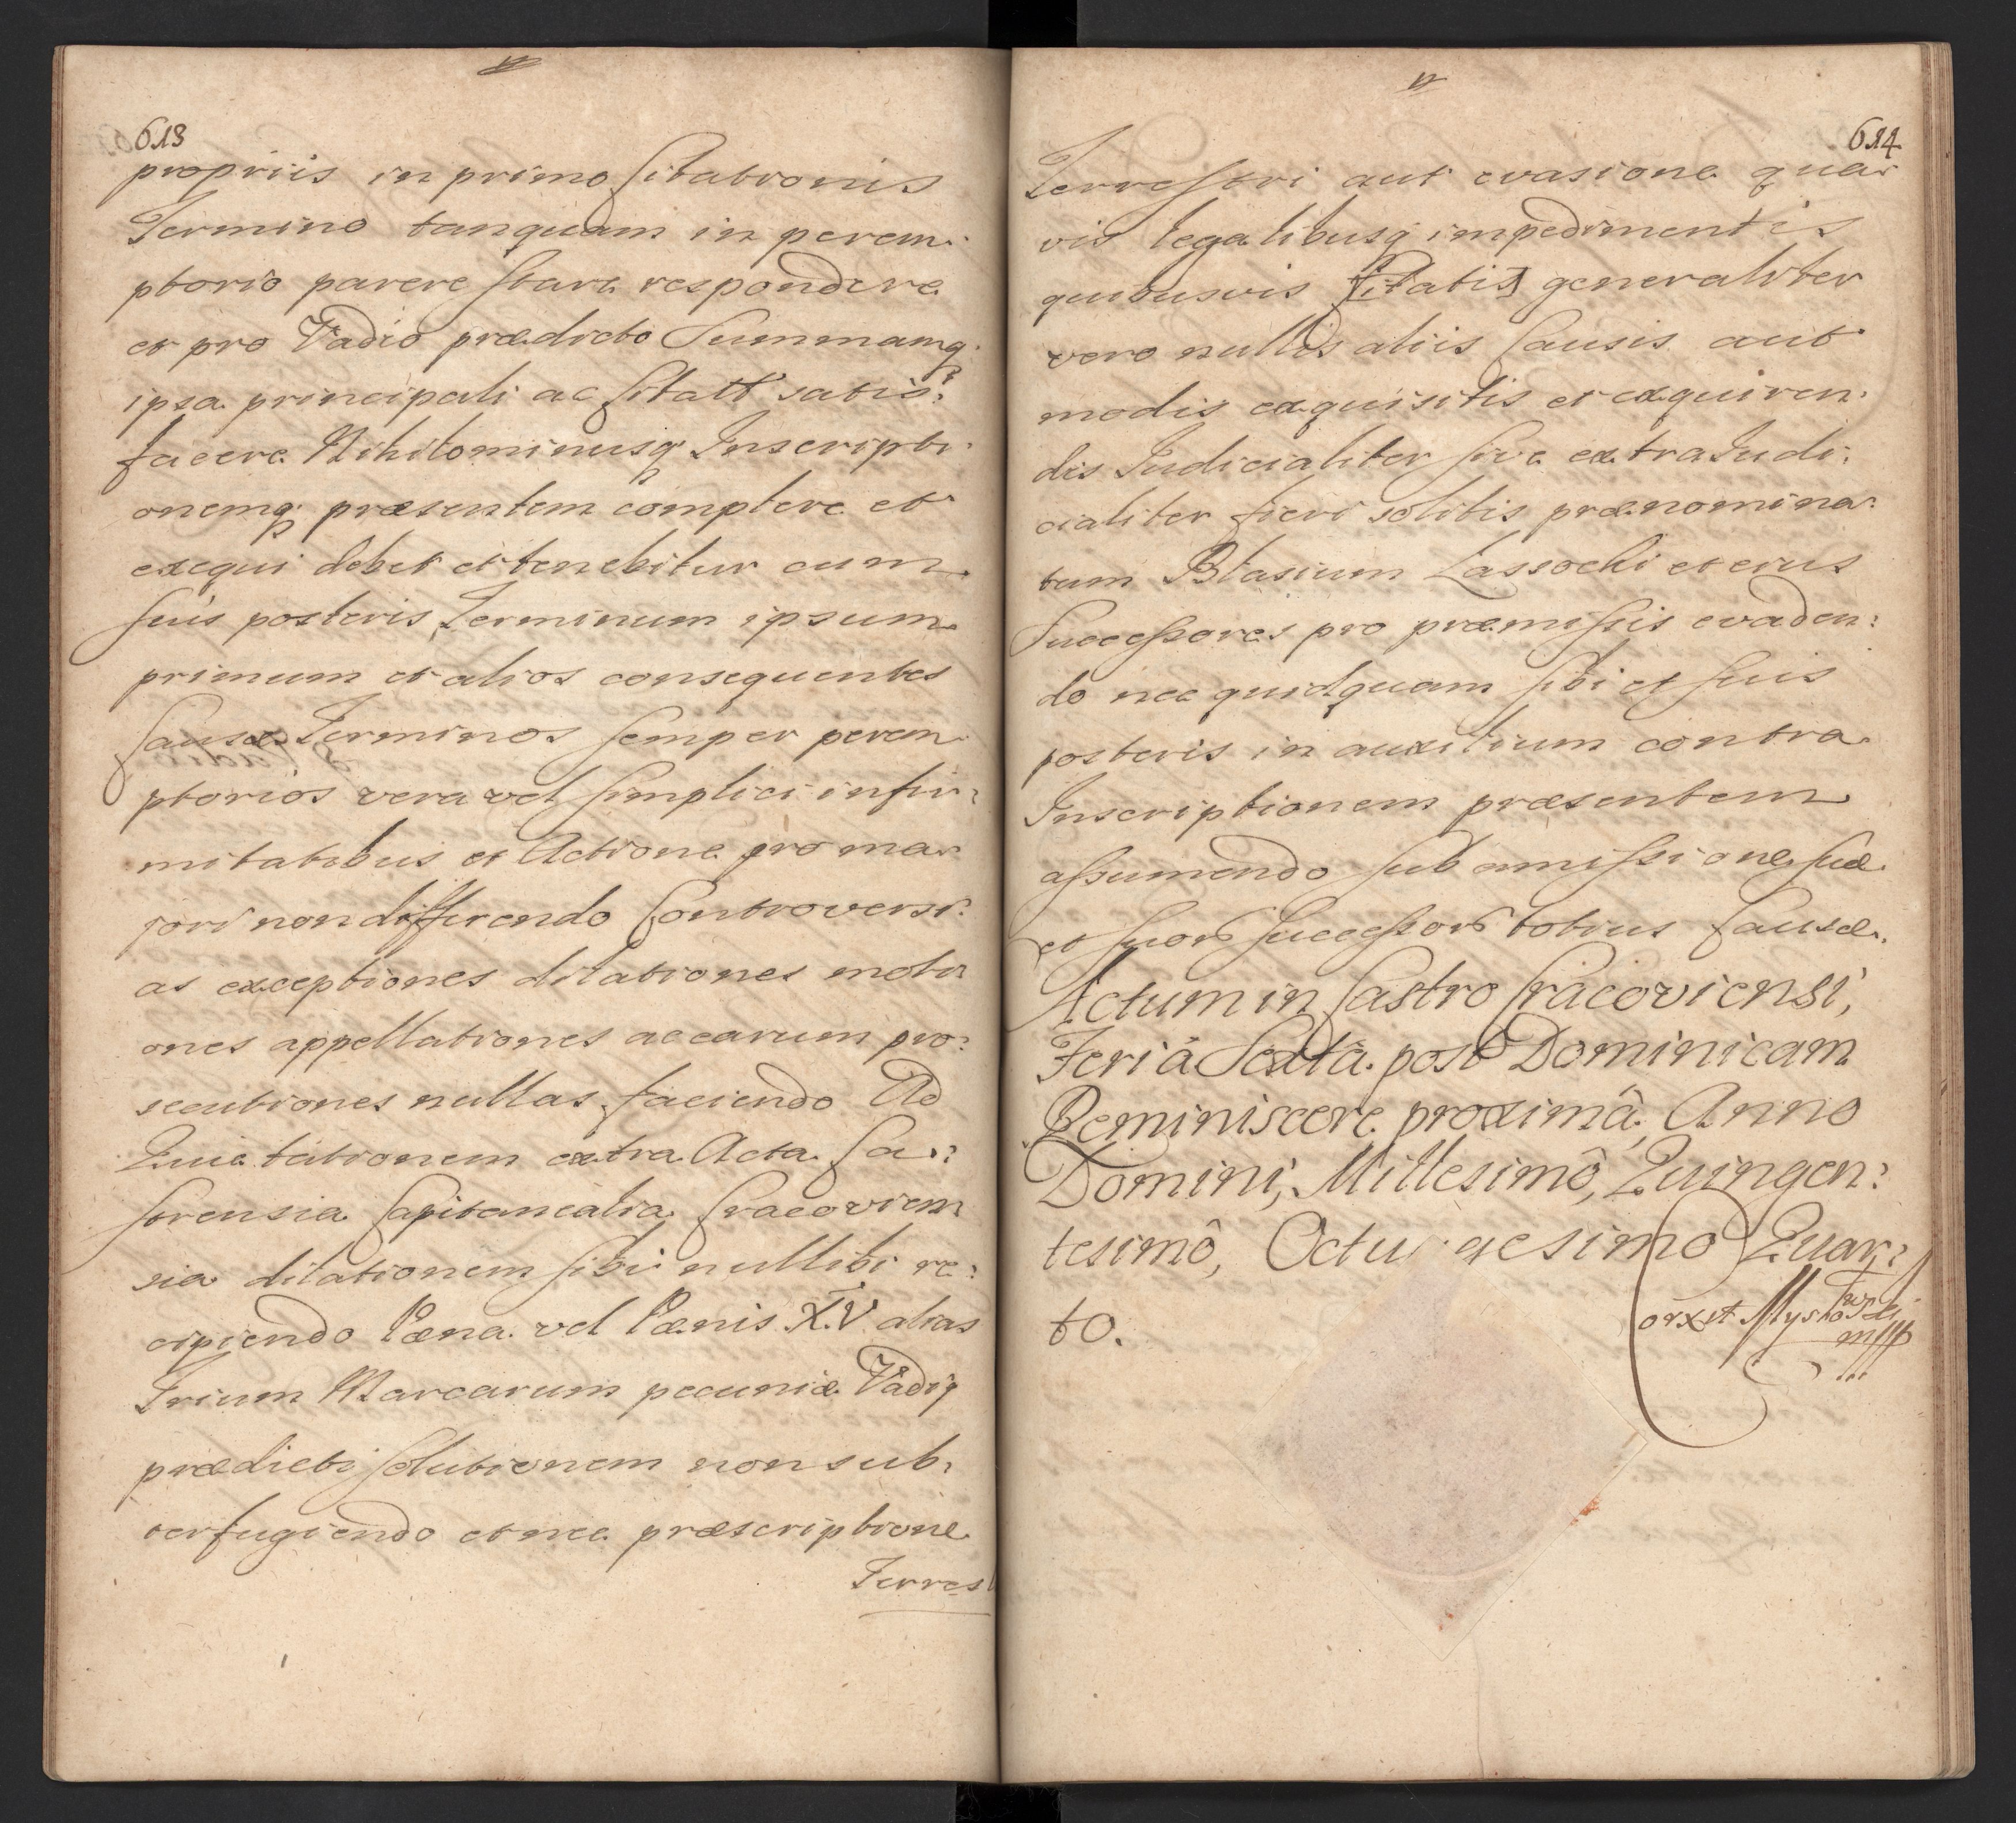 613
propriis in primo Citationis
Termino tanquam in perem:
ptorio parere stare respondere
et pro Vadio prædicto Summamq
ipsa principali ac Citatt satis:
facere Nihilominusq Inscripti:
onemq præsentem complere et
exequi debet et tenebitur cum
suis posteris Terminum ipsum
primum et alios consequentes
Causæ Terminos semper perem:
ptorios vera vel simplici infir:
mitatibus et Actione pro ma:
jori non differendo Controversi:
as exceptiones dilationes moti:
ones appellationes ac earum pro:
secutiones nullas faciendo Ad
Quietationem extra Acta Ca:
strensia Capitanealia Cracovien:
sia dilationem sibi nullibi re:
cipiendo Pæna vel Pænis XV alias
Trium Marcarum pecuniæ Vadiq
prædicti solutionem non sub:
terfugiendo et nec præscriptione
Terres
614
Terrestri aut evasione qua:
vis legalibusq impedimentis
quibusvis [Citatis] generaliter
vero nullis aliis Causis aut
modis exquisitis et exquiren:
dis Judicialiter sive extraJudi:
cialiter fieri solitis prænomina:
tum Blasium Lassocki et eius
Successores pro præmissis evaden:
do nec quidquam sibi et suis
posteris in auxilium contra
Inscriptionem præsentem
assumendo sub amissione suæ
et suor successor totius Causæ.
Actum in Castro Cracoviensi,
Feriâ Sextâ post Dominicam
Reminiscere proximâ, Anno
Domini, Millesimô, Quingen:
tesimô, Octuagesimo Quar:
to.